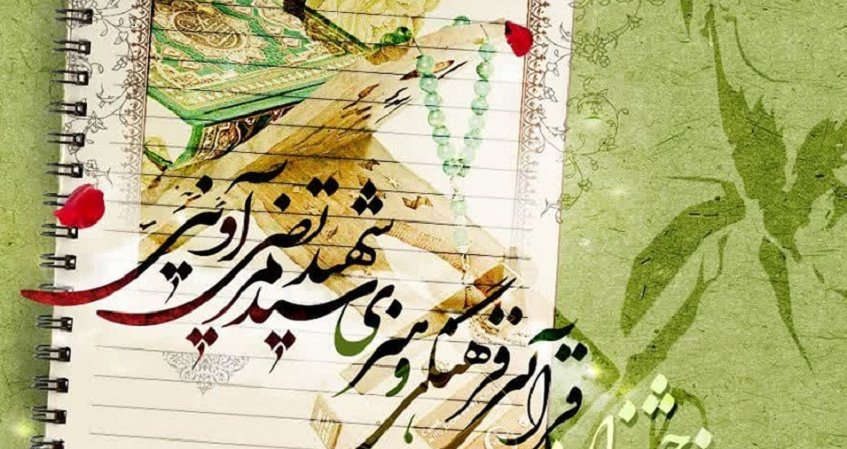 جشنواره
قرآنی فرهنگی و هنری
شهید سید مرتضی آوینی